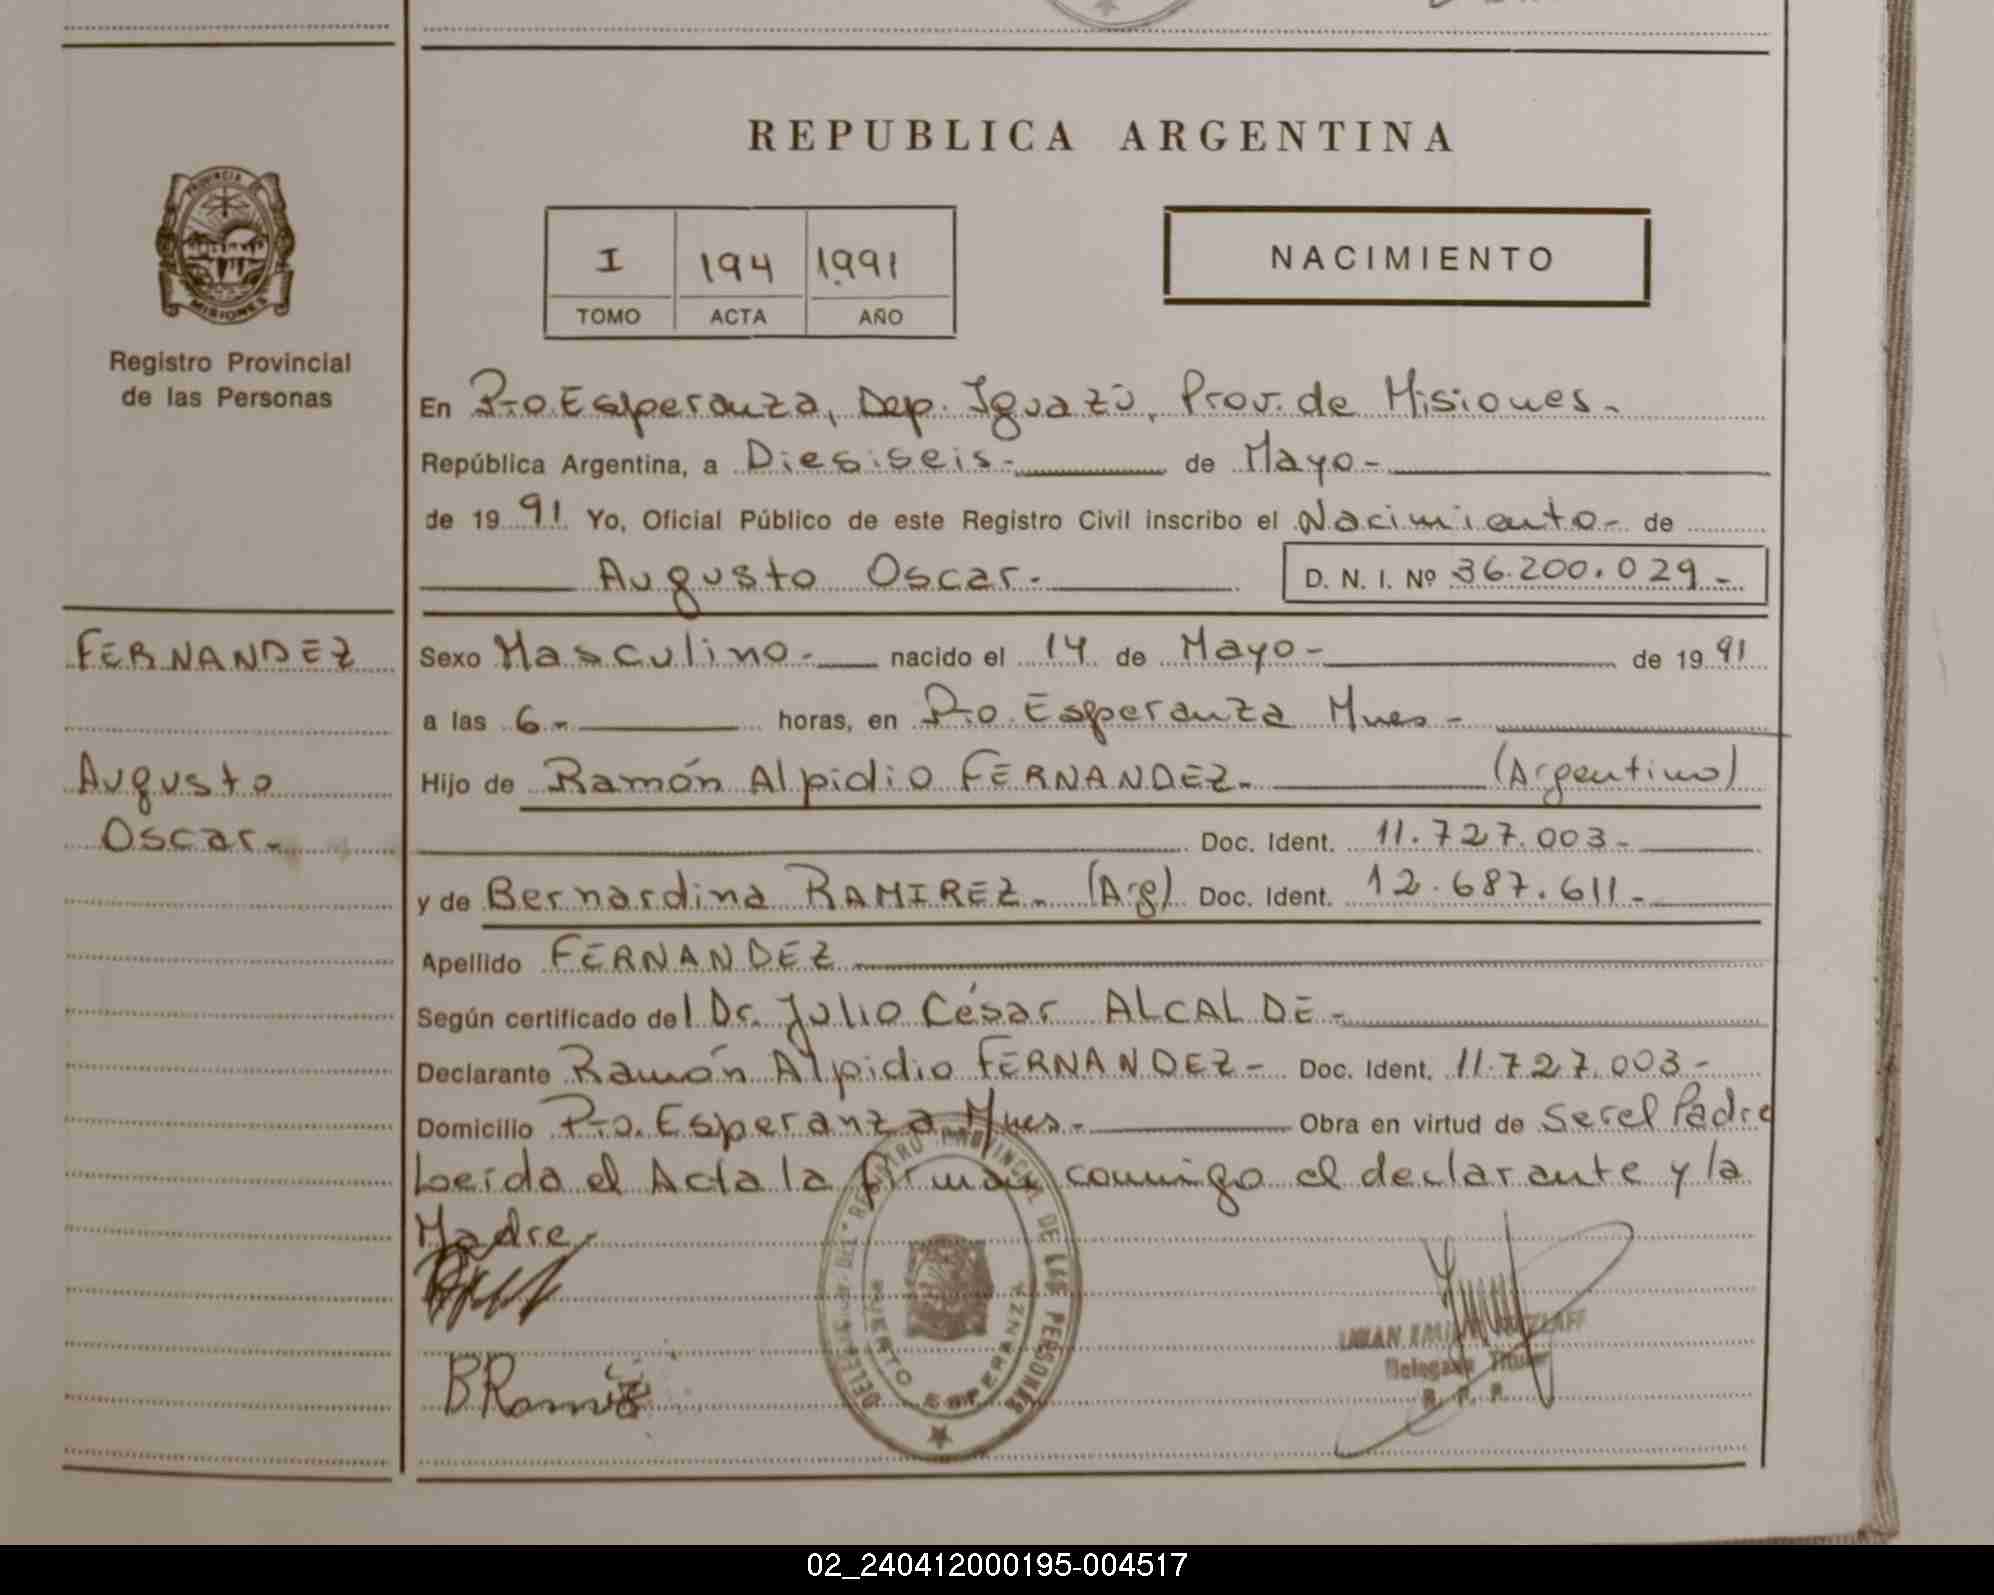 REPUBLICA ARGENTINA
PROVINCIA DE
MISIONES
Registro Provincial
de las Personas
I 194 1991
TOMO ACTA AÑO
NACIMIENTO
En Pto Esperanza, Dep. Iguazú, Prov. de Misiones-
República Argentina, a Diesiseis- de Mayo-
de 1991 Yo, Oficial Público de este Registro Civil inscribo el Nacimiento- de
Augusto Oscar- D. N. I. Nº 36.200.029-
FERNANDEZ
Augusto
Oscar-
Sexo Masculino- nacido el 14 de Mayo- de 1991
a las 6- horas, en Pto. Esperanza Mnes-
Hijo de Ramón Alpidio FERNANDEZ- (Argentino)
Doc. Ident. 11.727.003-
y de Bernardina RAMIREZ- (Arg) Doc. Ident. 12.687.611-
Apellido FERNANDEZ
Según certificado del Dr. Julio César ALCALDE-
Declarante Ramón Alpidio FERNANDEZ- Doc. Ident. 11.727.003-
Domicilio Pto. Esperanza Mnes- Obra en virtud de Ser el Padre
Leída el Acta la firman conmigo el declarante y la
Madre-
REGISTRO PROVINCIAL DE LAS PERSONAS
PUERTO ESPERANZA
B Ramirez
Delegado Titular
R. P. P.
02_240412000195-004517